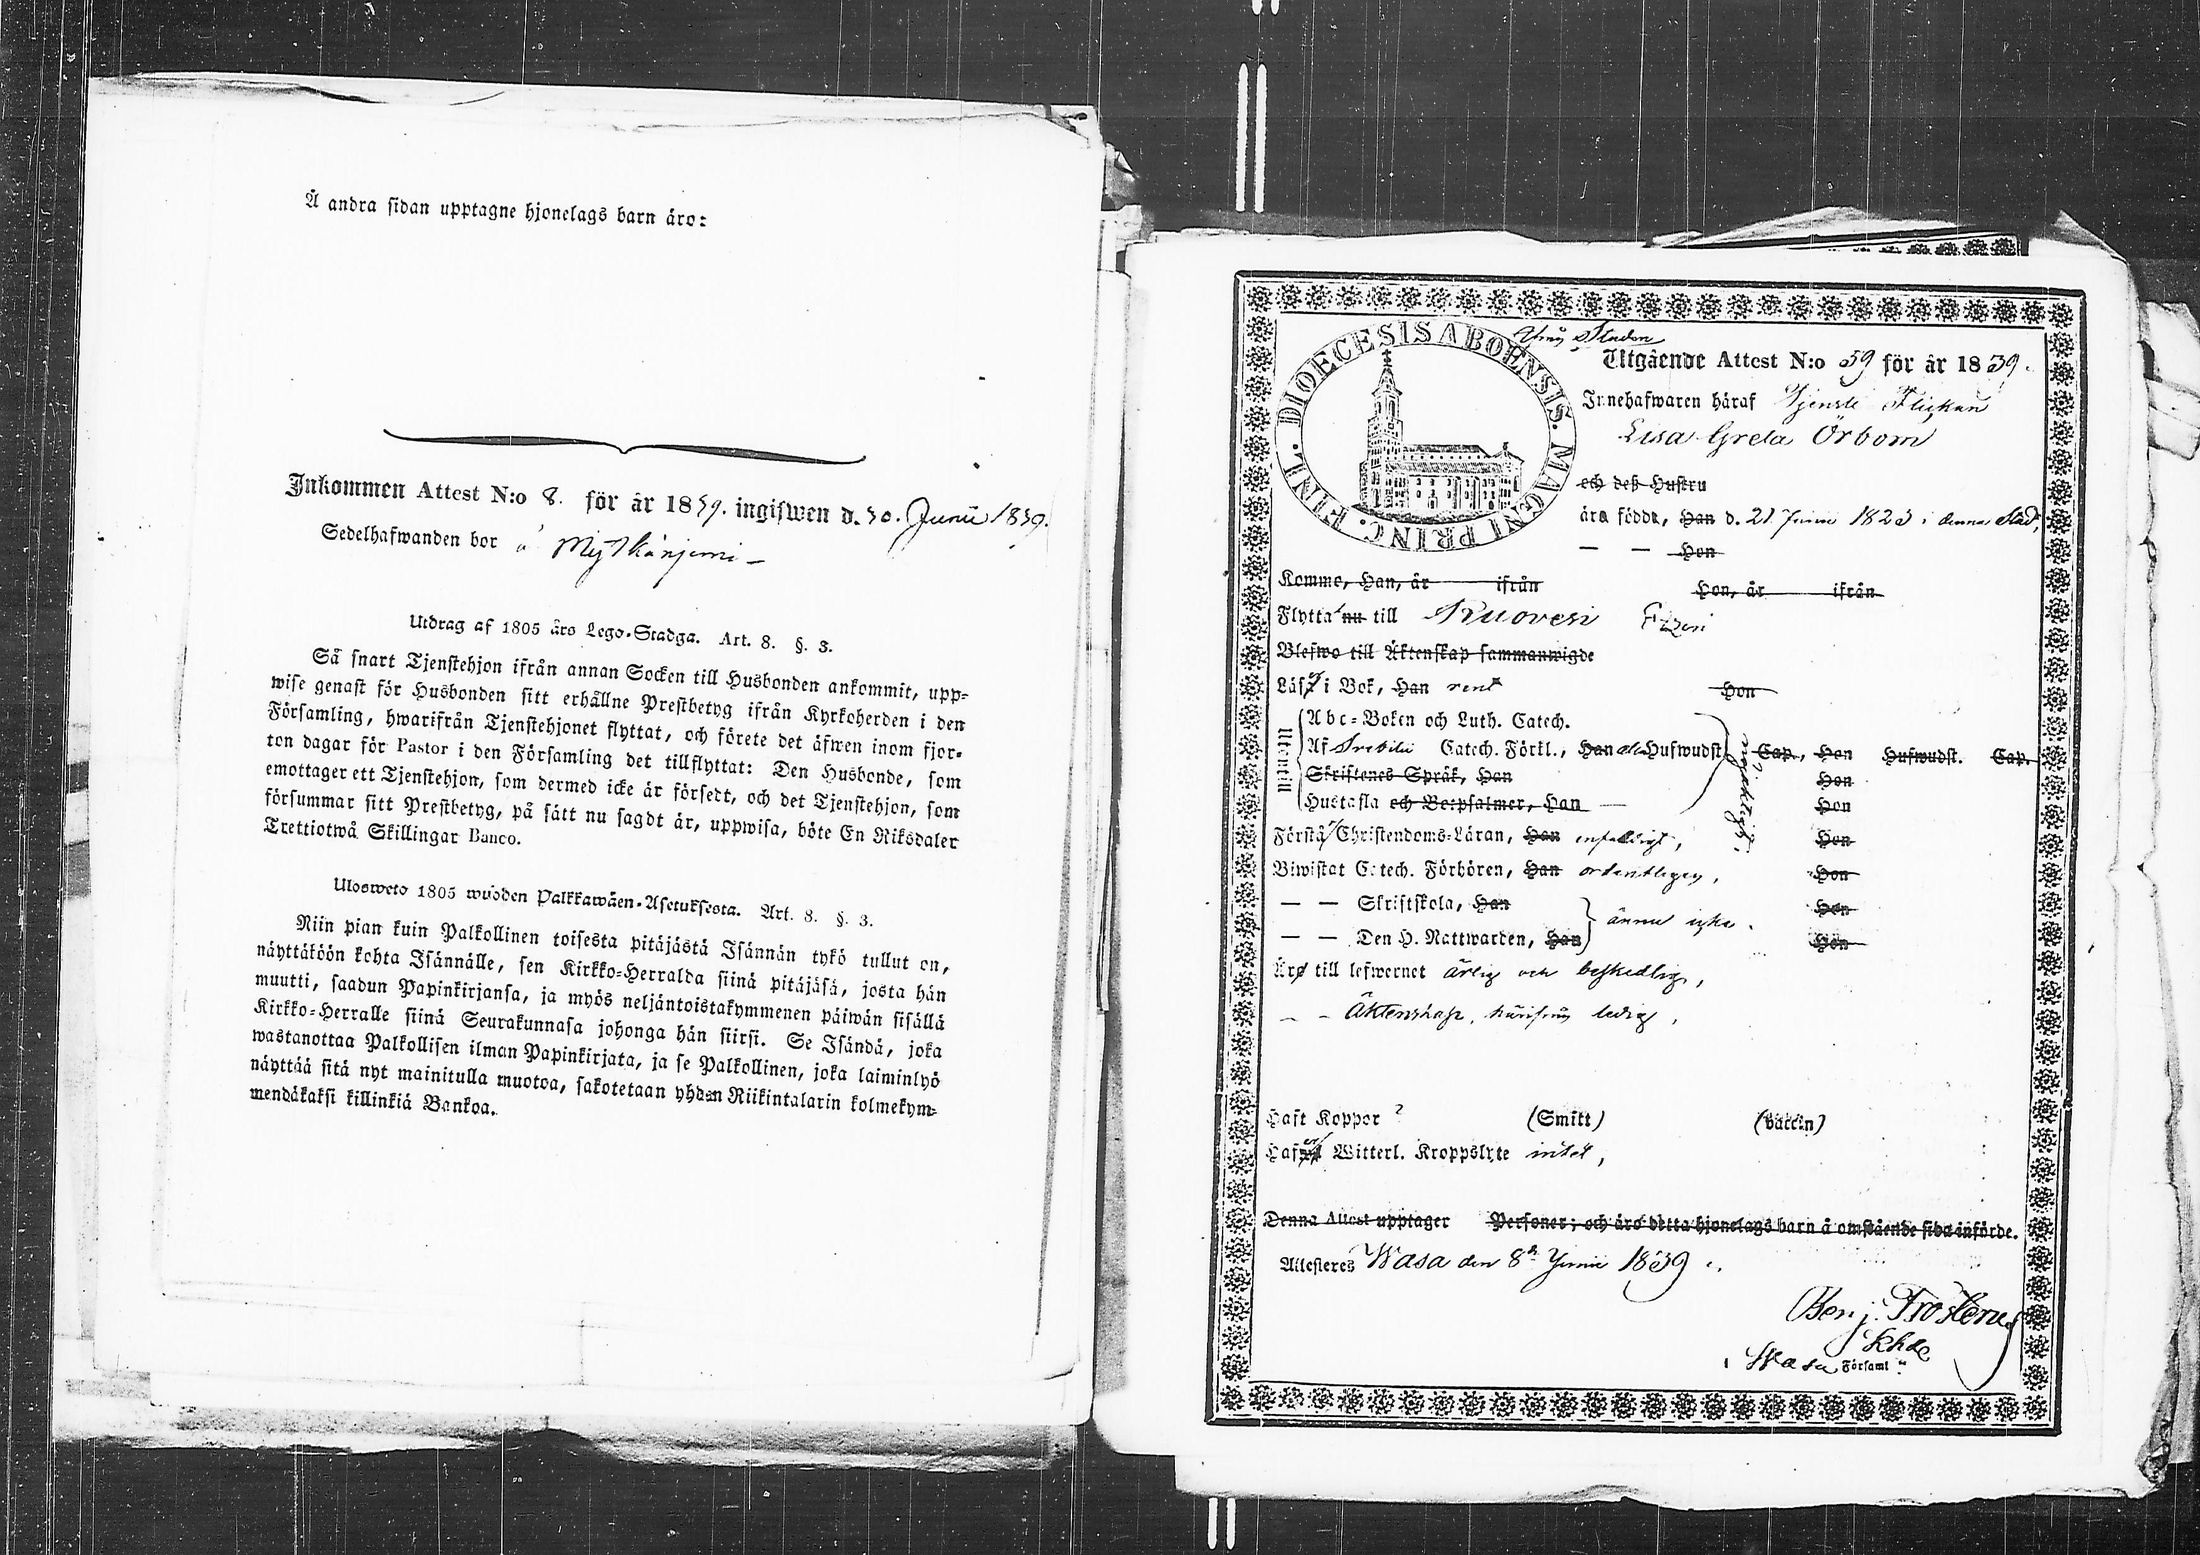 Å andra sidan upptagne hjonelags barn äro:
Inkommen Attest N:o 8. för år 1839. ingifwen d. 30. Junii 1839.
Sedelhafwanden bor å
Utdrag af 1805 års Lego-Stadga. Art. 8. §. 3.
Så snart Tjenstehjon ifrån annan Socken till Husbonden ankommit, upp-
wise genast för Husbonden sitt erhållne Prestbetyg ifrån Kyrkoherden i den
Församling, hwarifrån Tjenstehjonet flyttat, och förete det äfwen inom fjor-
ton dagar för Pastor i den Församling det tillflyttat: Den Husbonde, som
emottager ett Tjenstehjon, som dermed icke är försedt, och det Tjenstehjon, som
försummar sitt Prestbetyg, på sätt nu sagdt är, uppwisa, böte En Riksdaler
Trettiotwå Skillingar Banco.
Ulosweto 1805 wuoden Palkkawäen-Asetuksesta. Art. 8. §. 3.
Niin pian kuin Palkollinen toisesta pitäjästä Isännän tykö tullut on,
näyttäköön kohta Isännälle, sen Kirkko-Herralda siinä pitäjäsä, josta hän
muutti, saadun Papinkirjansa, ja myös neljäntoistakymmenen päiwän sisällä
Kirkko-Herralle siinä Seurakunnasa johonga hän siirsi. Se Isändä, joka
wastanottaa Palkollisen ilman Papinkirjata, ja se Palkollinen, joka laiminlyö
näyttää sitä nyt mainitulla muotoa, sakotetaan yhden Riikintalarin kolmekym-
mendäkaksi killinkiä Bankoa.
DIOECESIS ABOENSIS. MAGNI PRINC. FINL.
Staden
Utgående Attest N:o 59 för år 1839.
Innehafwaren häraf Tjenste Flickan
Lisa Greta Örbom
och deß Hustru
äro födde, Han d. 21 Junii 1823 i denna Stad,
— — Hon
Komne, Han, år ifrån Hon, år ifrån
Flytta nu till Ruovesi
Blefwo till Äktenskap sammanwigde
Läsa i Bok, Han rent Hon
Utantill
Abc-Boken och Luth. Catech.
Af Svebilii Catech. Förkl., Han Hufwudst. Cap., Hon Hufwudst. Cap.
Skriftenes Språk, Han Hon
Hustafla och Botpsalmer, Han — Hon
nöjaktligt.
Förstå Christendoms-Läran, Han enfaldigt, Hon
Biwistat Catech. Förhören, Han ordentligen, Hon
— — Skriftskola, Han Hon
— — Den H. Nattwarden, Han ännu icke. Hon
Äro till lefwernet ärlig och beskedlig,
— — Äktenskap, härifrån ledig,
Haft Koppor ? (Smitt) (Vaccin)
Hafwa Witterl. Kroppslyte intet,
Denna Attest upptager Personer; och äro detta hjonelags barn å omstående sida införde.
Attesteras Wasa den 8de Junii 1839.
Benj. Frosterus
Khde
i Wasa Församl.